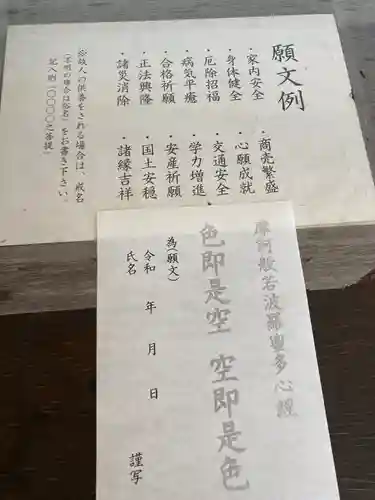 願文例
・家内安全
・身体健全
・厄除招福
・病気平癒
・合格祈願
・正法興隆
・諸災消除
・商売繁盛
・心願成就
・交通安全
・学力増進
・安産祈願
・国土安穏
・諸縁吉祥
必故人の供養をされる場合は、戒名
(不明の場合は俗名)をお書き下さい。
記入例「○○○○之菩提」
摩訶般若波羅蜜多心経
色即是空 空即是色
為(願文)
令和 年 月 日
氏名 謹写